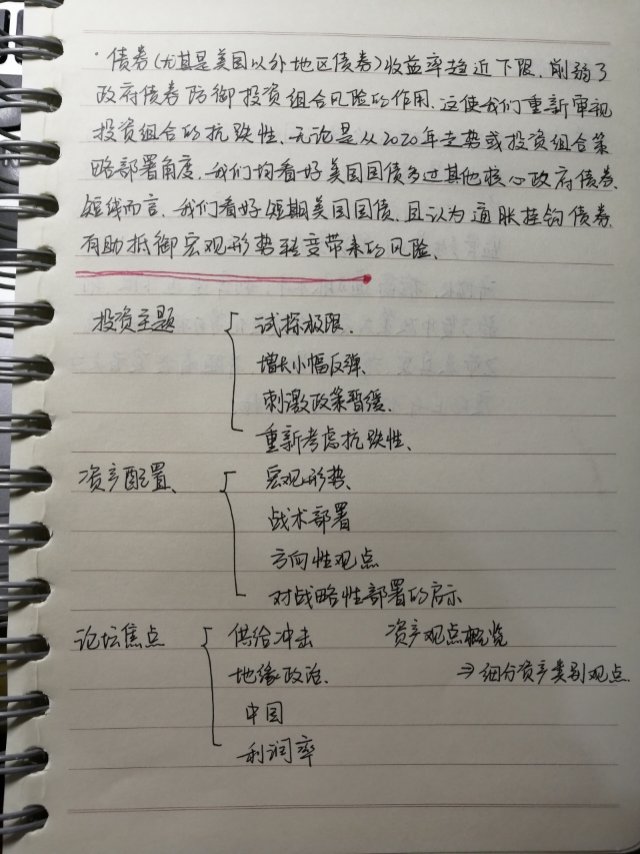 ·债券(尤其是美国以外地区债券)收益率趋近下限,削弱了
政府债券防御投资组合风险的作用.这使我们重新审视
投资组合的抗跌性.无论是从2020年走势或投资组合策
略部署角度,我们均看好美国国债多过其他核心政府债券.
短线而言,我们看好短期美国国债,且认为通胀挂钩债券
有助抵御宏观形势转变带来的风险.
投资主题 试探极限.
增长小幅反弹.
刺激政策暂缓.
重新考虑抗跌性.
资产配置. 宏观形势.
战术部署
方向性观点
对战略性部署的启示
论坛焦点 供给冲击 资产观点概览
地缘政治. ⇒细分资产类别观点.
中国
利润率